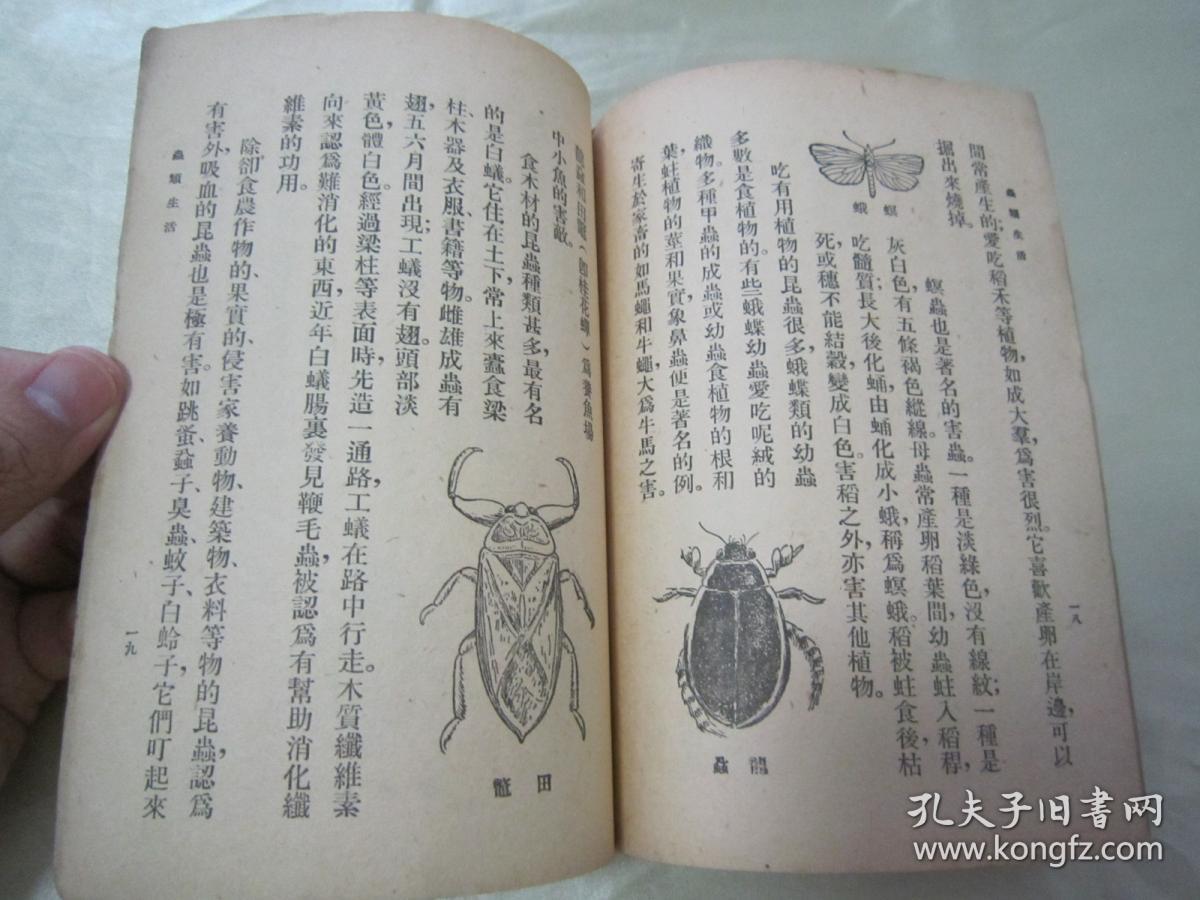 蟲類生活
一八
間常產生的;愛吃稻禾等植物,如成大羣,爲害很烈。它喜歡產卵在岸邊,可以
掘出來燒掉。
螟蟲也是著名的害蟲。一種是淡綠色,沒有線紋;一種是
灰白色,有五條褐色縱線。母蟲常產卵稻葉間,幼蟲蛀入稻稈,
吃髓質,長大後化蛹,由蛹化成小蛾,稱爲螟蛾。稻被蛀食後枯
死,或穗不能結穀,變成白色。害稻之外,亦害其他植物。
螟蛾
吃有用植物的昆蟲很多,蛾蝶類的幼蟲
多數是食植物的。有些蛾蝶幼蟲愛吃呢絨的
織物。多種甲蟲的成蟲或幼蟲食植物的根和
葉,蛀植物的莖和果實,象鼻蟲便是著名的例。
寄生於家畜的如馬蠅和牛蠅,大爲牛馬之害。
龍蝨
龍蝨和田鼈(卽桂花蟬)爲養魚場
中小魚的害敵。
食木材的昆蟲種類甚多,最有名
的是白蟻。它住在土下,常上來蠹食梁
柱、木器及衣服、書籍等物。雌雄成蟲有
翅,五六月間出現;工蟻沒有翅。頭部淡
黃色,體白色。經過梁柱等表面時,先造一通路,工蟻在路中行走。木質纖維素
向來認爲難消化的東西,近年白蟻腸裏發見鞭毛蟲,被認爲有幫助消化纖
維素的功用。
田鼈
除卻食農作物的、果實的、侵害家養動物、建築物、衣料等物的昆蟲,認爲
有害外,吸血的昆蟲也是極有害。如跳蚤、蝨子、臭蟲、蚊子、白蛉子,它們叮起來
蟲類生活
一九
孔夫子旧书网
www.kongfz.com